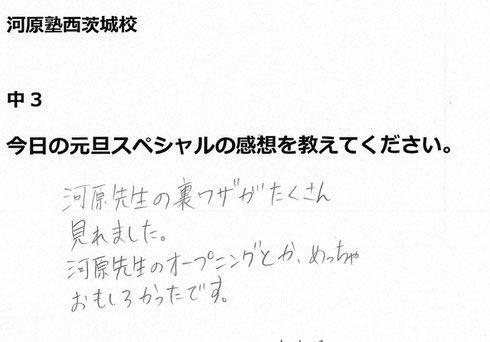 河原塾西茨城校
中３
今日の元旦スペシャルの感想を教えてください。
河原先生の裏ワザがたくさん
見れました。
河原先生のオープニングとか、めっちゃ
おもしろかったです。